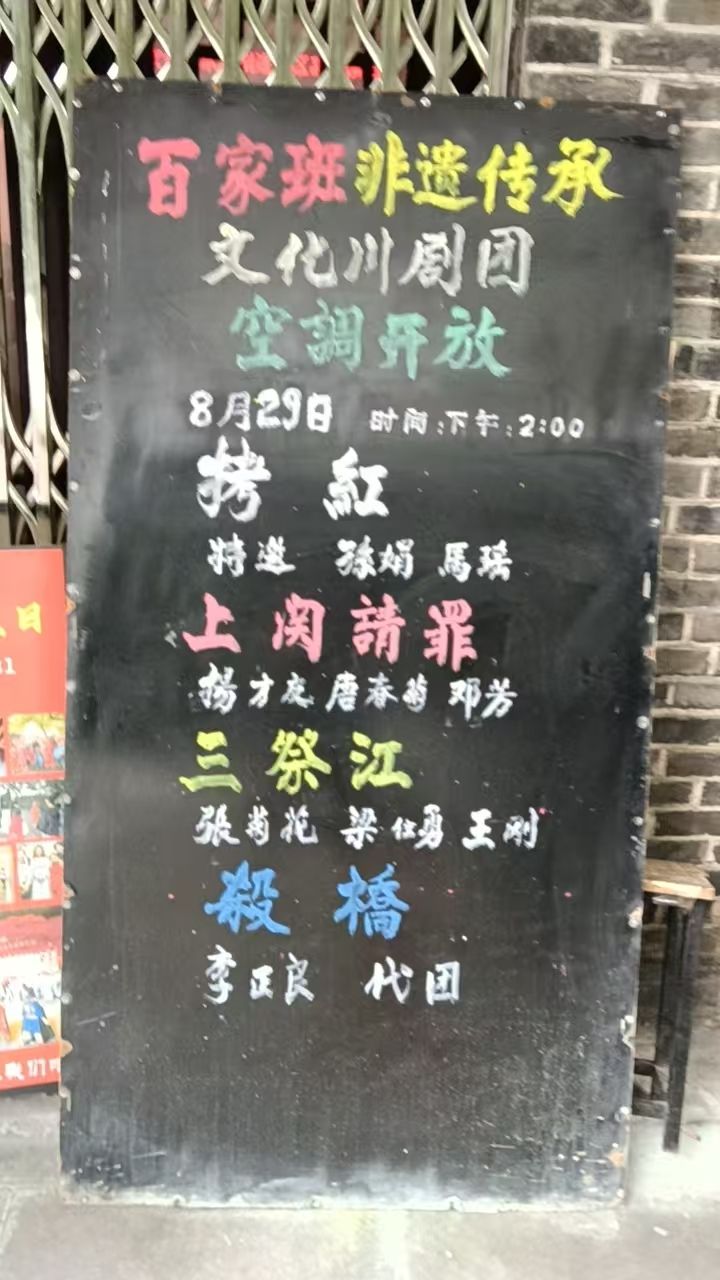 百家班非遗传承
文化川剧团
空調开放
8月29日 时间:下午:2:00
拷 紅
特邀 孫娟 馬瑶
上関請罪
揚才友 唐春菊 邓芳
三祭江
張菊花 梁仕勇 王刚
殺 橋
李正良 代团
日
我们